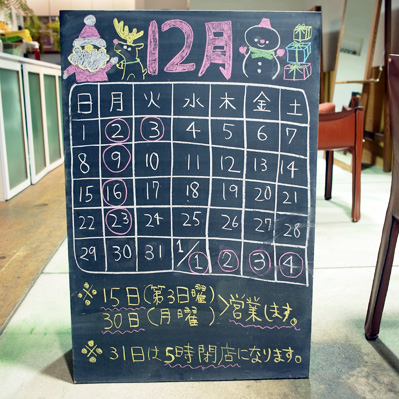 12月
日 月 火 水 木 金 土
1 2 3 4 5 6 7
8 9 10 11 12 13 14
15 16 17 18 19 20 21
22 23 24 25 26 27 28
29 30 31 1/1 2 3 4
※ 15日(第3日曜)
30日(月曜) >営業します。
※ 31日は5時閉店になります。